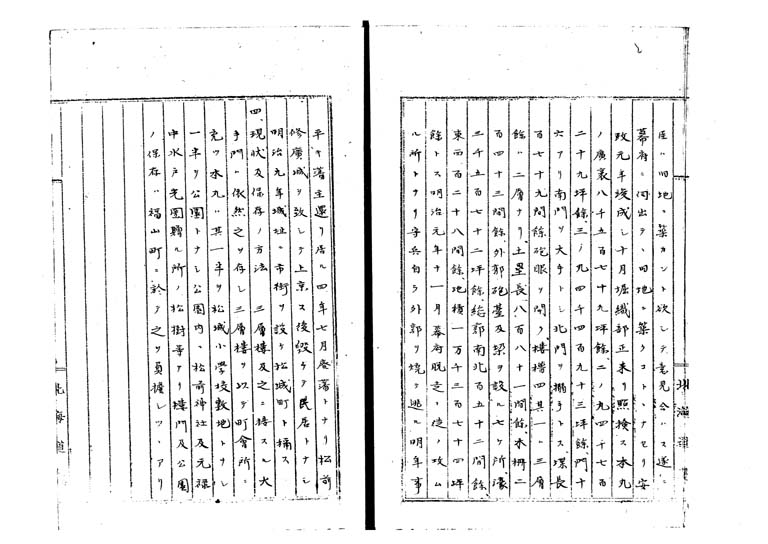 臣ハ旧地ニ築カント欲シテ意見合ハス遂ニ
幕府ニ伺出テ旧地ニ築クコトヽナセリ安
政元年竣成シ十月堀織部正来リ照検ス本丸
ノ廣袤八千五百七十九坪餘二ノ丸四千七百
二十九坪餘三ノ丸四千四百九十三坪餘門十
六アリ南門ヲ大手トシ北門ヲ搦手トス環長
百七十九間餘砲眼ヲ開ク樓櫓四其一ハ三層
餘ハ二層ナリ土壘長八百八十一間餘木柵二
百四十三間餘外郭砲臺及梁ヲ設ル七ケ所濠
三千五百七十二坪餘総郭南北百五十二間餘
東西百二十八間餘地積一万千三百七十四坪
餘トス明治元年十一月幕府脱走ノ徒ノ攻ム
ル所トナリ守兵自ラ外郭ヲ焼テ逃ル明年事
平キ藩主還リ居ル四年七月廃藩トナリ松前
修廣城ヲ致シテ上京ス後毀ケテ民居トナシ
明治九年城址ニ市街ヲ設ケ松城町ト稱ス
四、現状及保存ノ方法 三層樓及之ニ接スル大
手門ハ依然之ヲ存シ三層樓ヲ以テ町會所ニ
充ツ本丸ハ其一半ヲ松城小學校敷地トナシ
一半ヲ公園トナシ公園内ニ松前神社及元禄
中水戸光圀贈ル所ノ松樹等アリ樓門及公園
ノ保存ハ福山町ニ於テ之ヲ負擔シツヽアリ
北海道
北海道